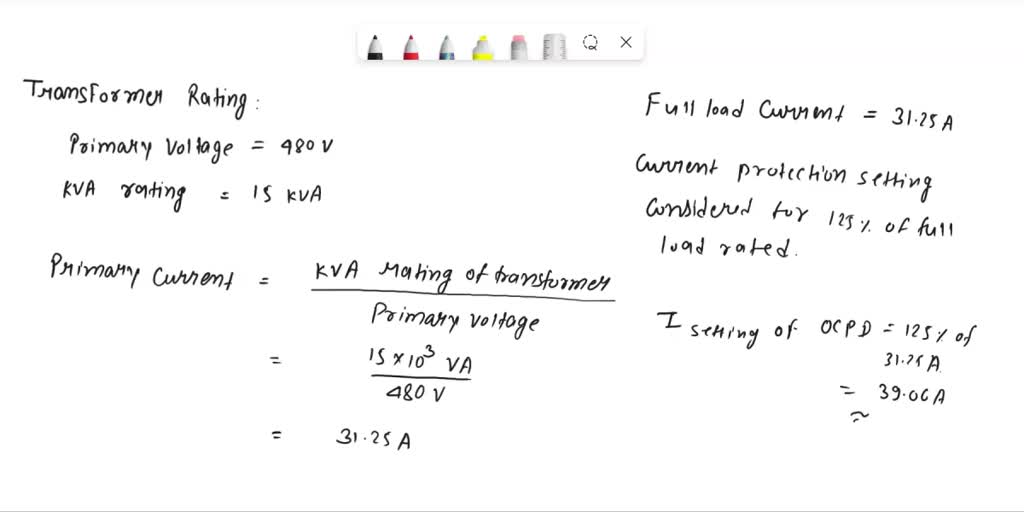 Transformer Rating:
Primary Voltage = 480 V
KVA rating = 15 KVA
Primary Current = KVA Rating of transformer
Primary voltage
= 15 × 10³ VA
480 V
= 31.25 A
Full load Current = 31.25 A
Current protection setting
Considered for 125% of full
load rated.
I setting of OCPD = 125% of
31.25 A.
= 39.06 A
≈